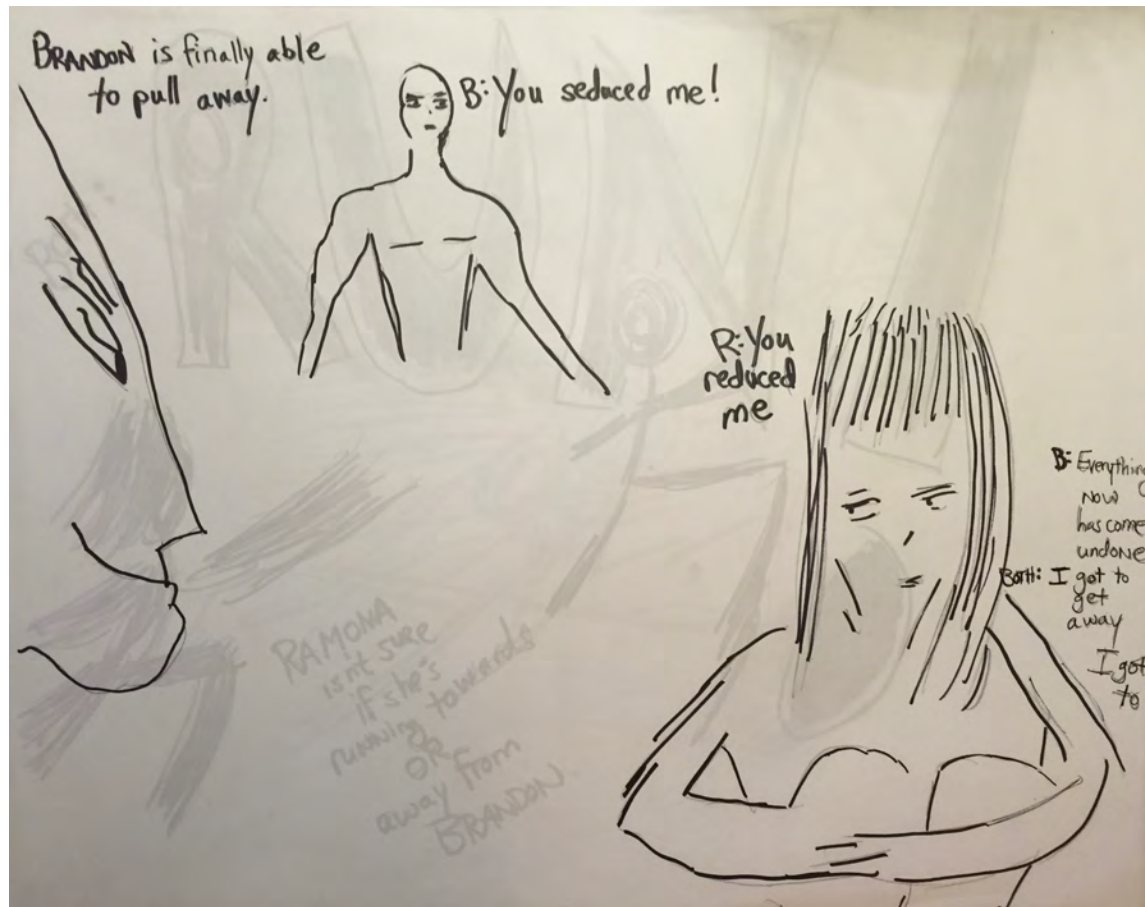 BRANDON is finally able
to pull away.
B: You seduced me!
R: You
reduced
me
B: Everything
NOW
has come
undone
BOTH: I got to
get
away
I got
to
RAMONA
isn't sure
if she's
running towards
OR
away from
BRANDON
RUN!